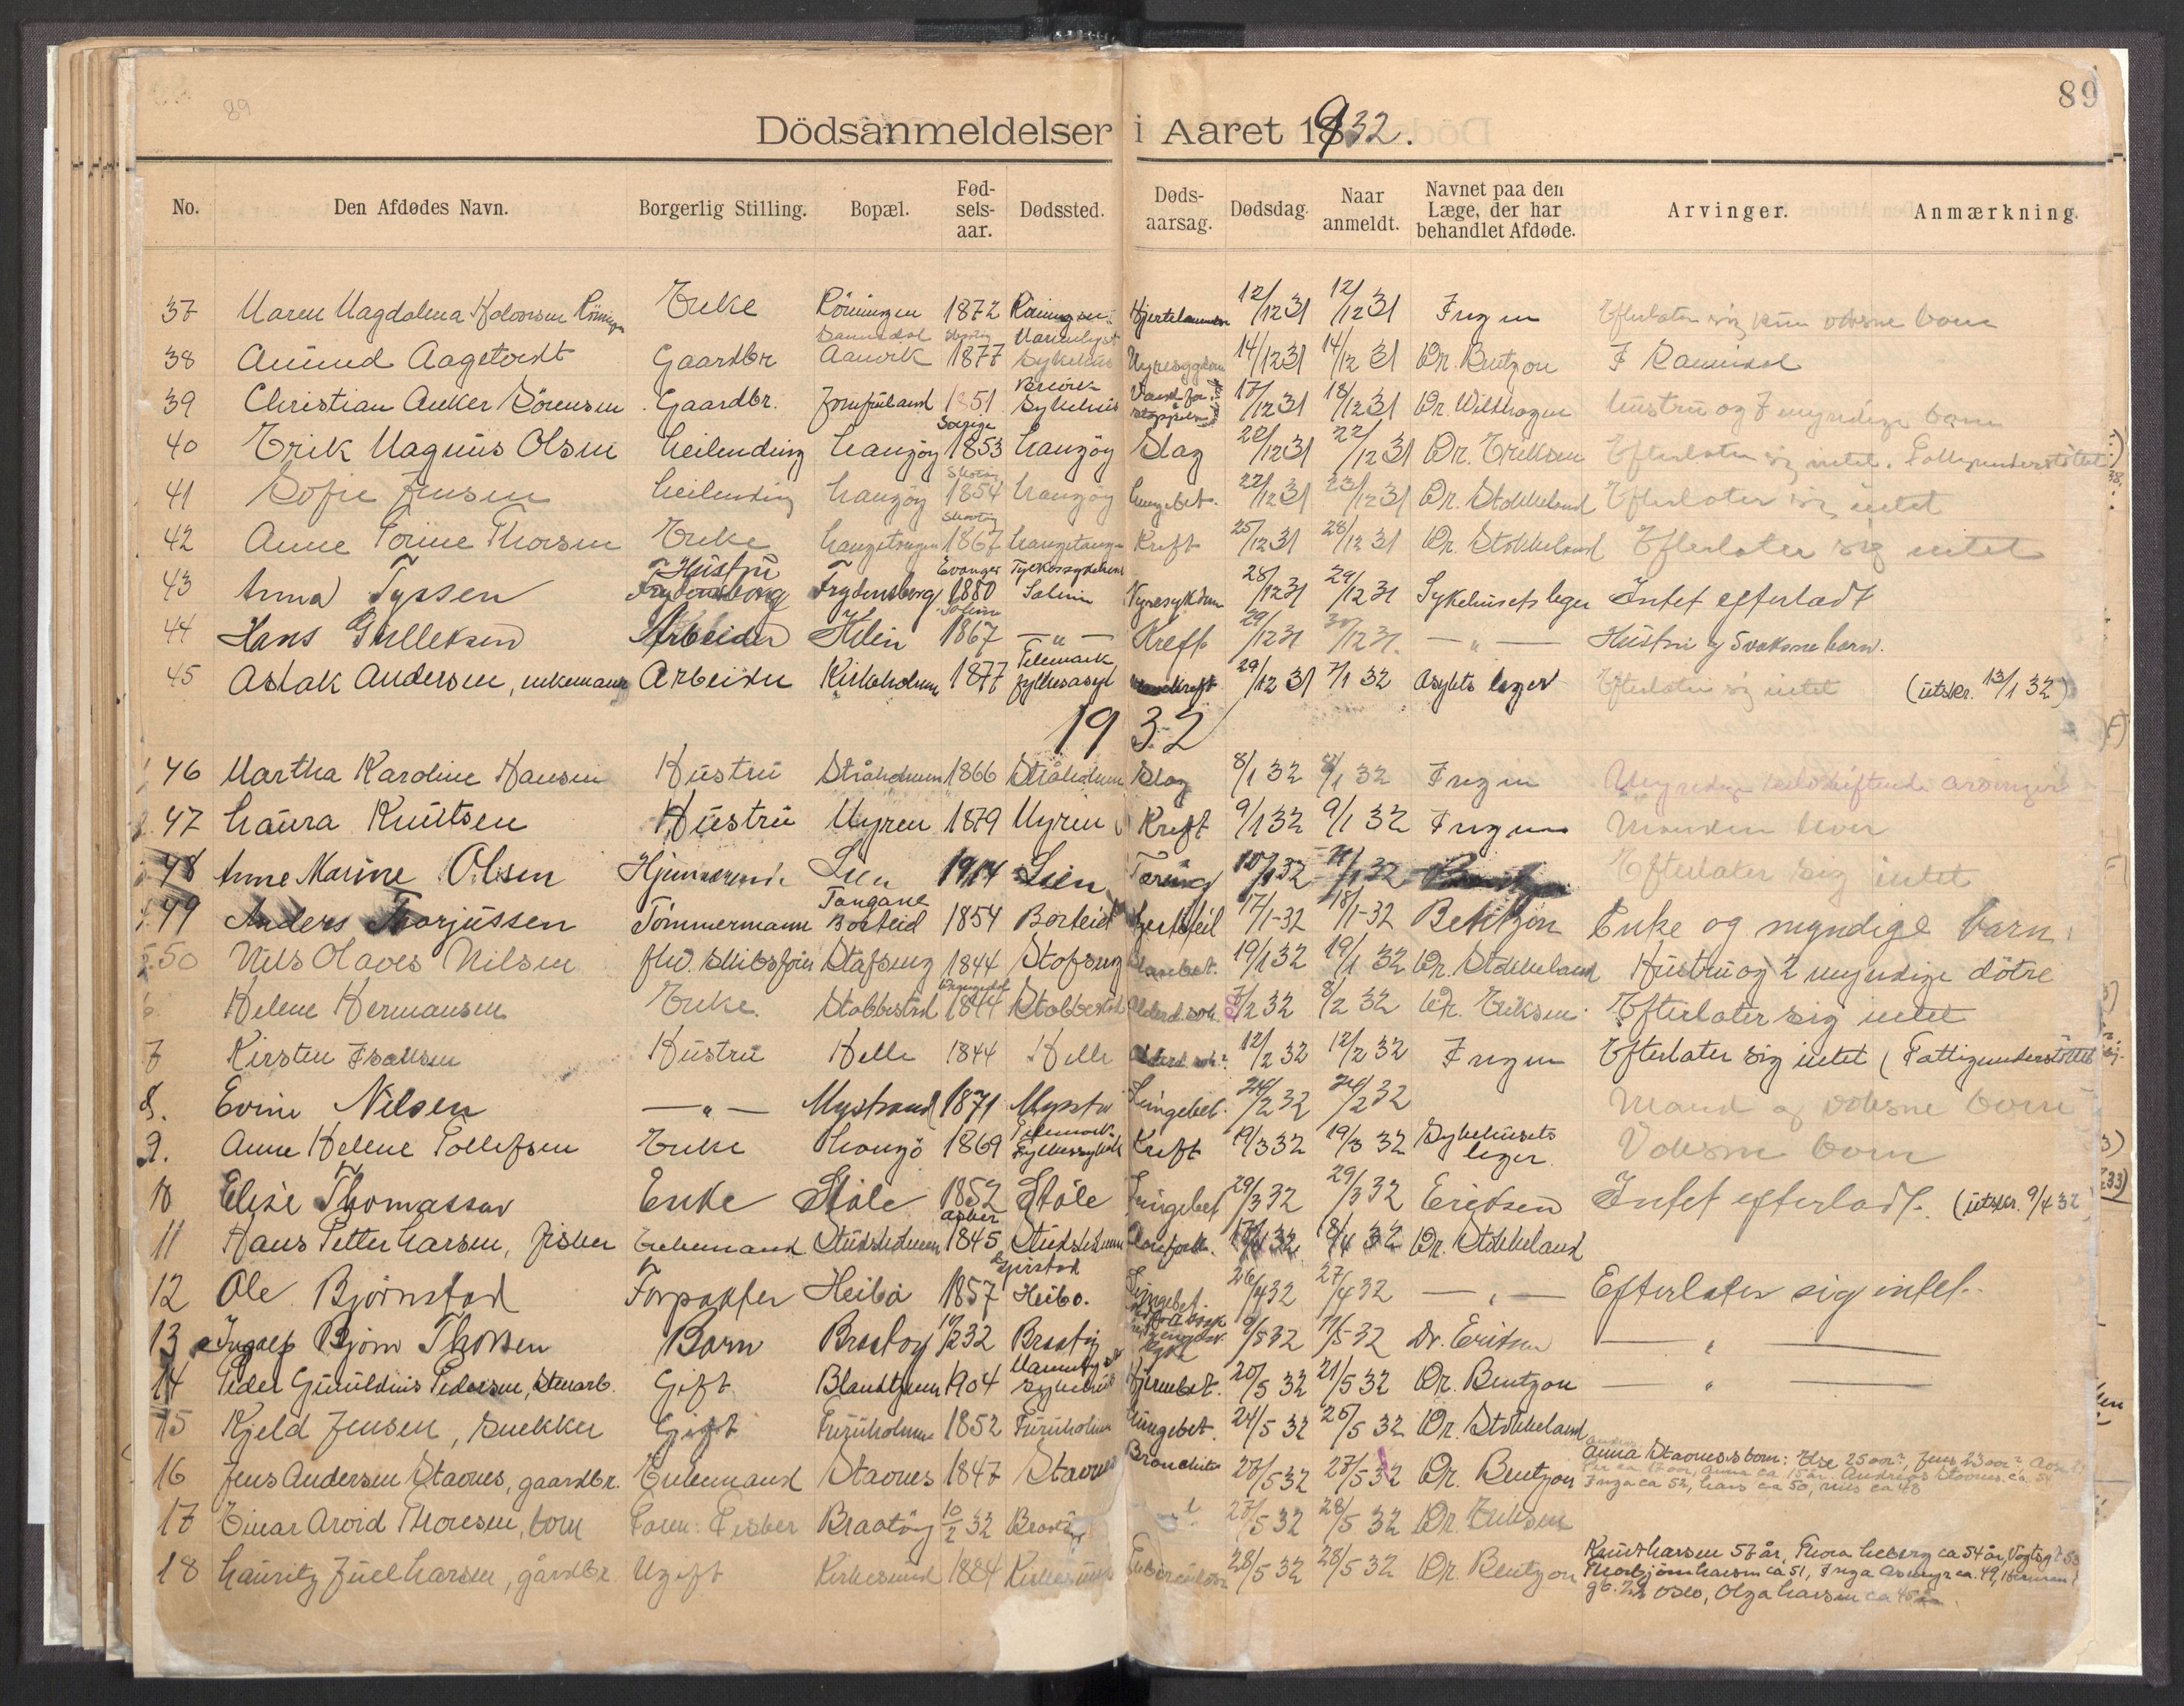 89
89
Dödsanmeldelser i Aaret 1932.
No. Den Afdødes Navn. Borgerlig Stilling. Bopæl. Fødselsaar. Dødssted. Dødsaarsag. Dødsdag. Naar anmeldt. Navnet paa den Læge, der har behandlet Afdøde. Arvinger. Anmærkning.
37 Maren Magdalena Halvorsen Rönningen Enke Rönningen 1872 Rönningen Hjertelammelse 12/12 31 12/12 31 Ingen Efterlater sig kun voksne barn
38 Amund Aagetveidt Gaardbr Sannidal Aanvik 1877 Sykehus Nyresygdom 14/12 31 14/12 31 Dr. Bentzon I Sannidal
39 Christian Anker Sörensen Gaardbr. Jomfruland 1851 Sykehus 17/12 31 18/12 31 Dr. Wilthagen hustru og 7 myndige barn
40 Erik Magnus Olsen Leilending Langöy Sverige 1853 Langöy Slag 22/12 31 22/12 31 Dr. Eriksen Efterlater sig intet. Fattigunderstöttet
41 Sofie Jensen Leilending Langöy Skåtöy 1854 Langöy Lungebet. 22/12 31 23/12 31 Dr. Stokkeland Efterlater sig intet
42 Anne Torine Thorsen Enke Langetangen Skåtöy 1867 Langetangen Kreft 25/12 31 28/12 31 Dr. Stokkeland Efterlater sig intet
43 Anna Tyssen Hustru Frydensborg Frydensborg Evanger 1880 Fylkessykehuset Nyresykdom 28/12 31 29/12 31 Sykehusets leger Intet efterladt
44 Hans Gulleksen Arbeider Kilen 1867 — " — Kreft 29/12 31 30/12 31. — " — Hustru og 5 voksne barn.
45 Aslak Andersen, enkemann Arbeider Kirkeholmen 1877 Telemark fylkesasyl 29/12 31 7/1 32 Asylets leger Efterlater sig intet (utskr. 13/1 32)
1932
46 Martha Karoline Hansen Hustru Stråholmen 1866 Stråholmen Slag 8/1 32 8/1 32 Ingen Myndige selvskiftende arvinger
47 Laura Knutsen Hustru Myren 1879 Myren Kreft 9/1 32 9/1 32 Ingen Manden lever
48 Anne Marine Olsen Hjemmeværende Lien 1914 Lien Tæring 10/1 32 11/1 32 Efterlater sig intet
49 Anders Thorjussen Tömmermann Tangane Borteid 1854 Borteid Hjertefeil 17/1-32 18/1-32 Bentzon Enke og myndige barn.
50 Nils Olaves Nilsen fhv. skibsförer Stafseng 1844 Stofseng Blærebet. 19/1 32 19/1 32 Dr. Stokkeland Hustru og 2 myndige dötre
6 Helene Hermansen Enke. Stabbestad 1844 Stabbestad 7/2 32 8/2 32 Dr. Eriksen Efterlater sig intet
7 Kirsten Isaksen Hustru Helle 1844 Helle 12/2 32 12/2 32 Ingen Efterlater sig intet (Fattigunderstöttet
8. Evine Nilsen — " — Mystrand 1871 Lungebet. 24/2 32 26/2 32 Mand og voksne barn
9. Anne Helene Tollefsen Enke Langö 1869 Telemark Fylkessykeh Kreft 19/3 32 19/3 32 Sykehusets leger. Voksne barn
10 Elise Thomassen Enke Støle 1852 Støle Lungebet 29/3 32 29/3 32 Eriksen Intet efterladt. (utskr. 9/4 32)
11 Hans Petter Larsen, fisker Enkemand Studsholmen Asker 1845 Studsholmen 17/4 32 18/4 32 Dr. Stokkeland
12 Ole Bjørnstad Forpakter Heibø Gjerstad 1857 Heibø. Lungebet. 26/4 32 27/4 32 — " — Efterlater sig intet.
13 Ingolf Bjørn Thorsen Barn Braatøy 10/2 32 Braatøy 9/5 32 11/5 32 Dr. Eriksen — " —
14 Peder Gunuldius Pedersen, Stenarb. Gift Blandtjenn 1904 sykehus Hjernebet. 20/5 32 21/5 32 Dr. Bentzon — " —
15 Kjeld Jensen, Snekker Gift Furuholmen 1852 Furuholmen Lungebet. 24/5 32 26/5 32 Dr. Stokkeland
16 Jens Andersen Stavnes, gaardbr. Enkemand Stavnes 1847 Stavnes Bronchite 27/5 32 27/5 32 Dr. Bentzon Anna Stavnes's barn: Else 25 aar, Jens 23 aar
Inga ca 52, Lars ca 50, Nils ca 48
17 Einar Arvid Thoresen, barn Faren: Fisker Braatöy 10/2 32 Braatöy 27/5 32 28/5 32 Dr. Eriksen
18 Lauritz Juel Larsen, gårdbr. Ugift Kirkesund 1884 Kirkesund Tuberculose 28/5 32 28/5 32 Dr. Bentzon Knut Larsen 57 år, Thora Leberg ca 54 år,
Thorbjörn Larsen ca 51, Inga Asmyr ca. 49, Herman
Oslo, Olga Larsen ca 45